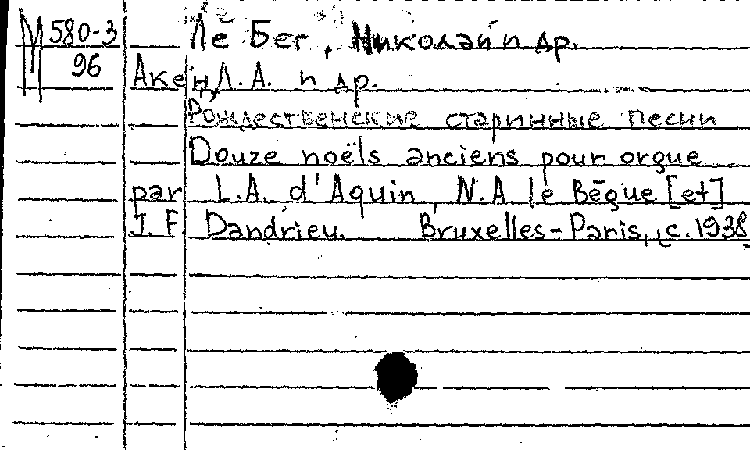 М 580-3
96
Ле Бег, Николай и др.
Акен, Л. А. и др.
Рождественские старинные песни
Douze noëls anciens pour orgue
par L.A. d'Aquin, N.A le Bégue [et]
J. F. Dandrieu. Bruxelles-Paris, [c. 1938]